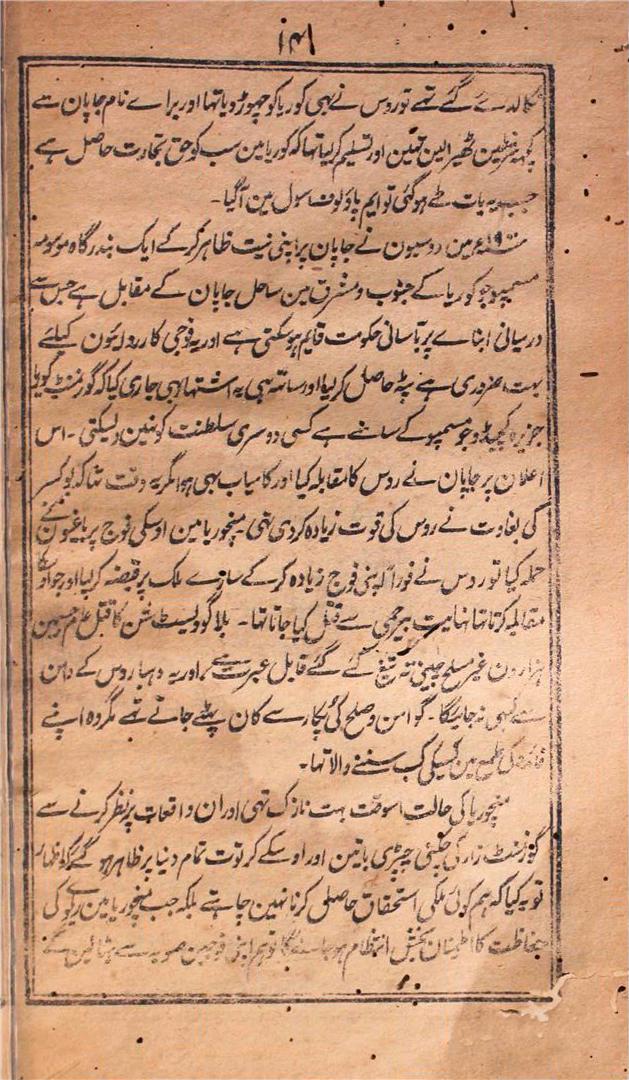 ۱۴۱
نکالدے گئے تہے تو روس نے بہی کوریا کو چہوڑ دیا تہا اور براے نام جاپان سے
کچہہ شرطین ٹھیرا لین تہین اور تسلیم کر لیا تہا کہ کوریا مین سب کو حق تجارت حاصل ہے
جب یہ بات طے ہو گئی تو ایم پاولوف سول مین آگیا۔
مین روسیون نے جاپان پر اپنی نیت ظاہر کر کے ایک بندرگاہ موسومہ
مسمپو جو کوریا کے جنوب و مشرق مین ساحل جاپان کے مقابل ہے جس سے
درمیانی ابناے پر بآسانی حکومت قایم ہو سکتی ہے اور یہ فوجی کارروائیون کیلئے
بہت ضروری ہے پٹہ حاصل کر لیا اور ساتہ ہی یہ اشتہار بہی جاری کیا کہ گورمنٹ کوریا
جزیرہ کچیڈو جو مسمپو کے سامنے ہے کسی دوسری سلطنت کو نہین دیسکتی۔ اس
اعلان پر جاپان نے روس کا مقابلہ کیا اور کامیاب بہی ہوا مگر یہ وقت تہا کہ بوکسر
کی بغاوت نے روس کی قوت زیادہ کر دی تہی۔ منچوریا مین اوسکی فوج پر باغیون نے
حملہ کیا تو روس نے فوراً اپنی فوج زیادہ کر کے سارے ملک پر قبضہ کر لیا اور جو اوسکا
مقابلہ کرتا تہا نہایت بیرحمی سے قتل کیا جاتا تہا۔ بلاگوویسٹ شن کا قتل عام جسمین
ہزارون غیر مسلح چینی تہ تیغ کئے گئے قابل عبرت ہے اور یہ دہبا روس کے دامن
سے کبہی نہ جائیگا۔ گو امن و صلح کی پکار سے کان پہٹے جاتے تہے مگر وہ اپنے
فائدہ کی طمع مین کسیکی کب سننے والا تہا۔
منچوریا کی حالت اسوقت بہت نازک تہی اور ان واقعات پر نظر کرنے سے
گورنمنٹ زار کی چکنی چپڑی باتین اور اوسکے کرتوت تمام دنیا پر ظاہر ہو گئے کہ اظہار
تو یہ کیا کہ ہم کوئی ملکی استحقاق حاصل کرنا نہین چاہتے بلکہ جب منچوریا مین ریلوے کی
حفاظت کا اطمینان بخش انتظام ہو جائے گا تو ہم اپنی فوجین صوبہ سے ہٹا لین گے